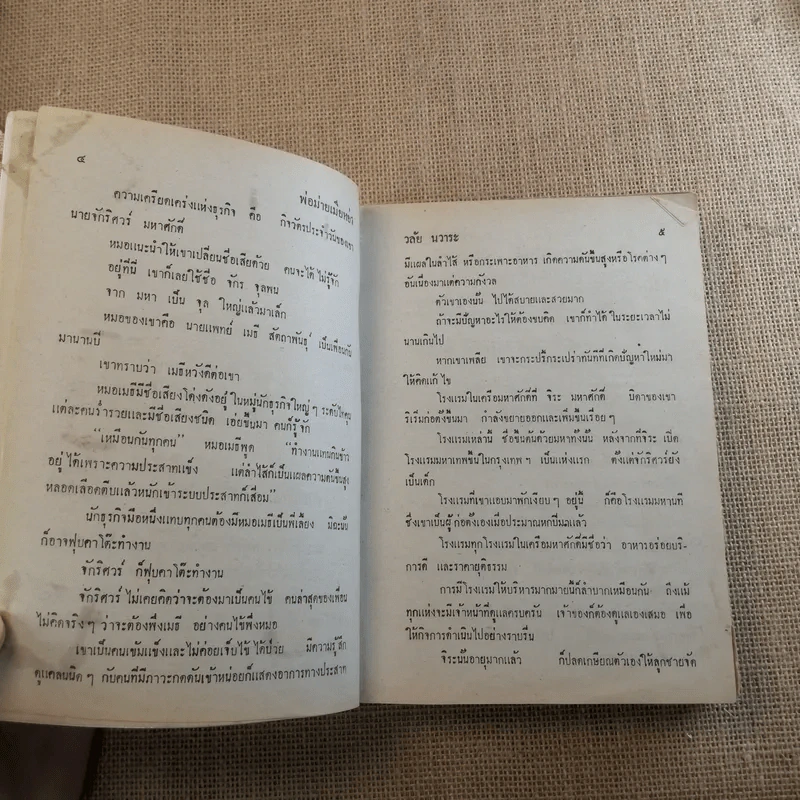 ๔
พ่อม่ายเมียหย่า
ความเครียดเคร่งแห่งธุรกิจ คือ กิจวัตรประจำวันของเขา
นายจักริศวร์ มหาศักดิ์
หมอแนะนำให้เขาเปลี่ยนชื่อเสียด้วย คนจะได้ไม่รู้จัก
อยู่ที่นี่ เขาก็เลยใช้ชื่อ จักร จุลพน
จาก มหา เป็น จุล ใหญ่แล้วมาเล็ก
หมอของเขาคือ นายแพทย์ เมธี สัตถาพันธุ์ เป็นเพื่อนกัน
มานานปี
เขาทราบว่า เมธีหวังดีต่อเขา
หมอเมธีมีชื่อเสียงโด่งดังอยู่ในหมู่นักธุรกิจใหญ่ๆ ระดับไหน
แต่ละคนร่ำรวยและมีชื่อเสียงชนิด เอ่ยขึ้นมา คนก็รู้จัก
"เหมือนกันทุกคน" หมอเมธีพูด "ทำงานแทนกินข้าว
อยู่ได้เพราะความประสาทแข็ง แต่ลำไส้ก็เป็นแผลความดันขึ้นสูง
หลอดเลือดตีบแล้วหนักเข้าระบบประสาทก็เสื่อม"
นักธุรกิจมือหนึ่งแทบทุกคนต้องมีหมอเมธีเป็นพี่เลี้ยง มิฉะนั้น
ก็อาจฟุบคาโต๊ะทำงาน
จักริศวร์ ก็ฟุบคาโต๊ะทำงาน
จักริศวร์ไม่เคยคิดว่าจะต้องมาเป็นคนไข้ คนล่าสุดของเพื่อน
ไม่คิดจริงๆ ว่าจะต้องพึ่งเมธี อย่างคนไข้พึ่งหมอ
เขาเป็นคนเข้มแข็งและไม่ค่อยเจ็บไข้ได้ป่วย มีความรู้สึก
ดูแคลนนิดๆ กับคนที่มีภาวะกดดันเข้าหน่อยก็แสดงอาการทางประสาท
วลัย นวาระ
๕
มีแผลในลำไส้ หรือกระเพาะอาหาร เกิดความดันขึ้นสูงหรือโรคต่างๆ
อันเนื่องมาแต่ความกังวล
ตัวเขาเองนั้น ไปได้สบายและสวยมาก
ถ้าจะมีปัญหาอะไรให้ต้องขบคิด เขาก็ทำได้ในระยะเวลาไม่
นานเกินไป
หากเขาเพลีย เขาจะกระปรี้กระเปร่าทันทีที่เกิดปัญหาใหม่มา
ให้คิดแก้ไข
โรงแรมในเครือมหาศักดิ์ที่ จิระ มหาศักดิ์ บิดาของเขา
ริเริ่มก่อตั้งขึ้นมา กำลังขยายออกและเพิ่มขึ้นเรื่อยๆ
โรงแรมเหล่านี้ ชื่อขึ้นต้นด้วยมหาทั้งนั้น หลังจากที่จิระ เปิด
โรงแรมมหาเทพขึ้นในกรุงเทพฯ เป็นแห่งแรก ตั้งแต่จักริศวร์ยัง
เป็นเด็ก
โรงแรมที่เขาแอบมาพักเงียบๆ อยู่นี้ ก็คือโรงแรมมหานที
ซึ่งเขาเป็นผู้ก่อตั้งเองเมื่อประมาณหกปีมาแล้ว
โรงแรมทุกโรงแรมในเครือมหาศักดิ์มีชื่อว่า อาหารอร่อยบริ-
การดี และราคายุติธรรม
การมีโรงแรมให้บริหารมากมายนี้ก็ลำบากเหมือนกัน ถึงแม้
ทุกแห่งจะมีเจ้าหน้าที่ดูแลครบครัน เจ้าของก็ต้องดูแลเองเสมอ เพื่อ
ให้กิจการดำเนินไปอย่างราบรื่น
จิระนั้นอายุมากแล้ว ก็ปลดเกษียณตัวเองให้ลูกชายจัด